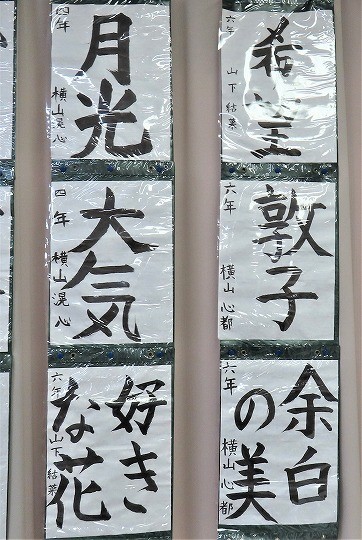 希望
六年 山下 結菜
敦子
六年 横山 心都
余白
の美
六年 横山 心都
月光
四年 横山滉心
大気
四年 横山 滉心
好き
な花
六年 山下 結菜